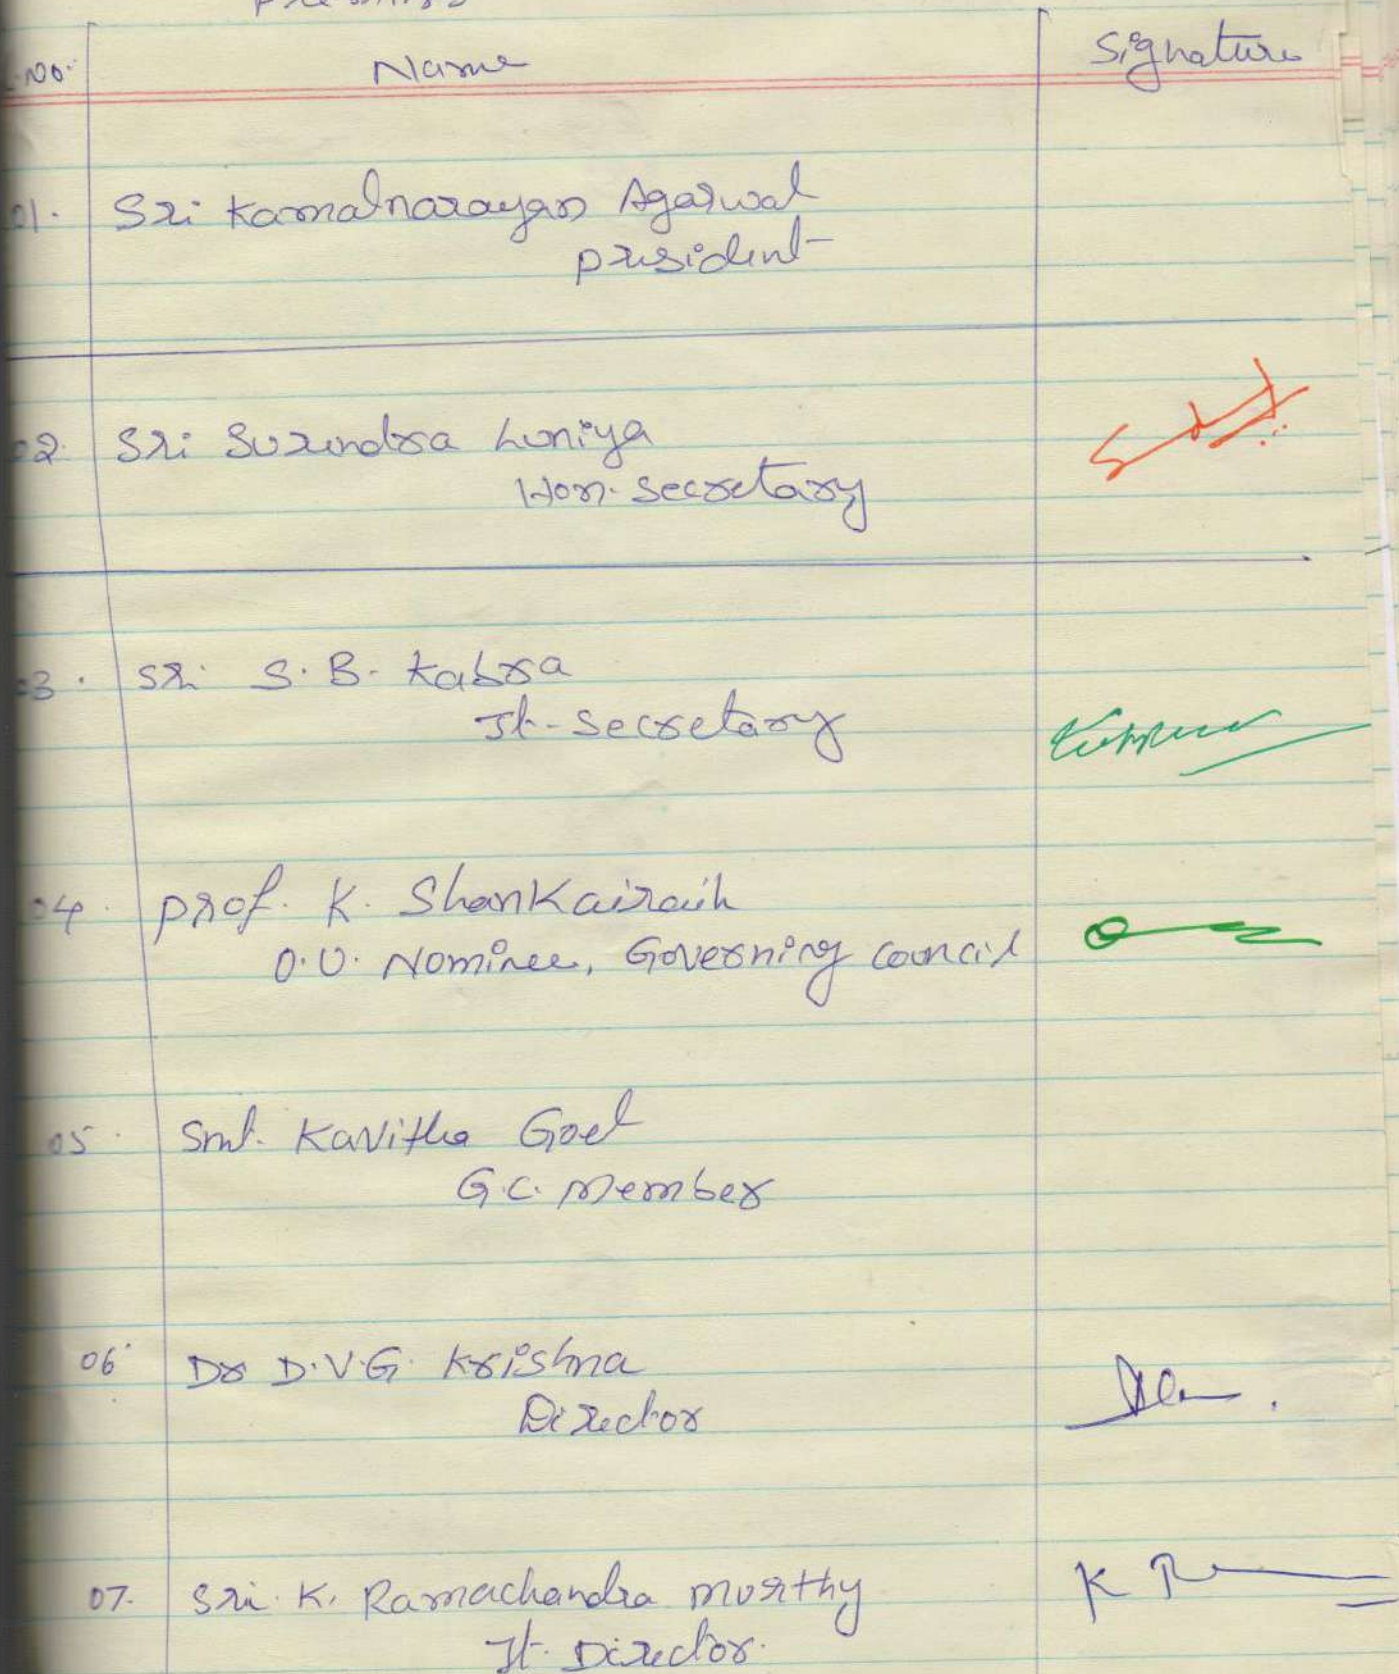 premises
No. Name Signature
01. Sri Kamalnarayan Agarwal
president
02. Sri Surendra Luniya
Hon. Secretary
03. Sri S.B. Kabra
Jt. Secretary
04. prof. K. Shankairaih
O.U. Nominee, Governing Council
05. Smt. Kavitha Goel
G.C. Member
06. Dr D.V.G. Krishna
Director
07. Sri. K. Ramachandra Murthy
Jt. Director.